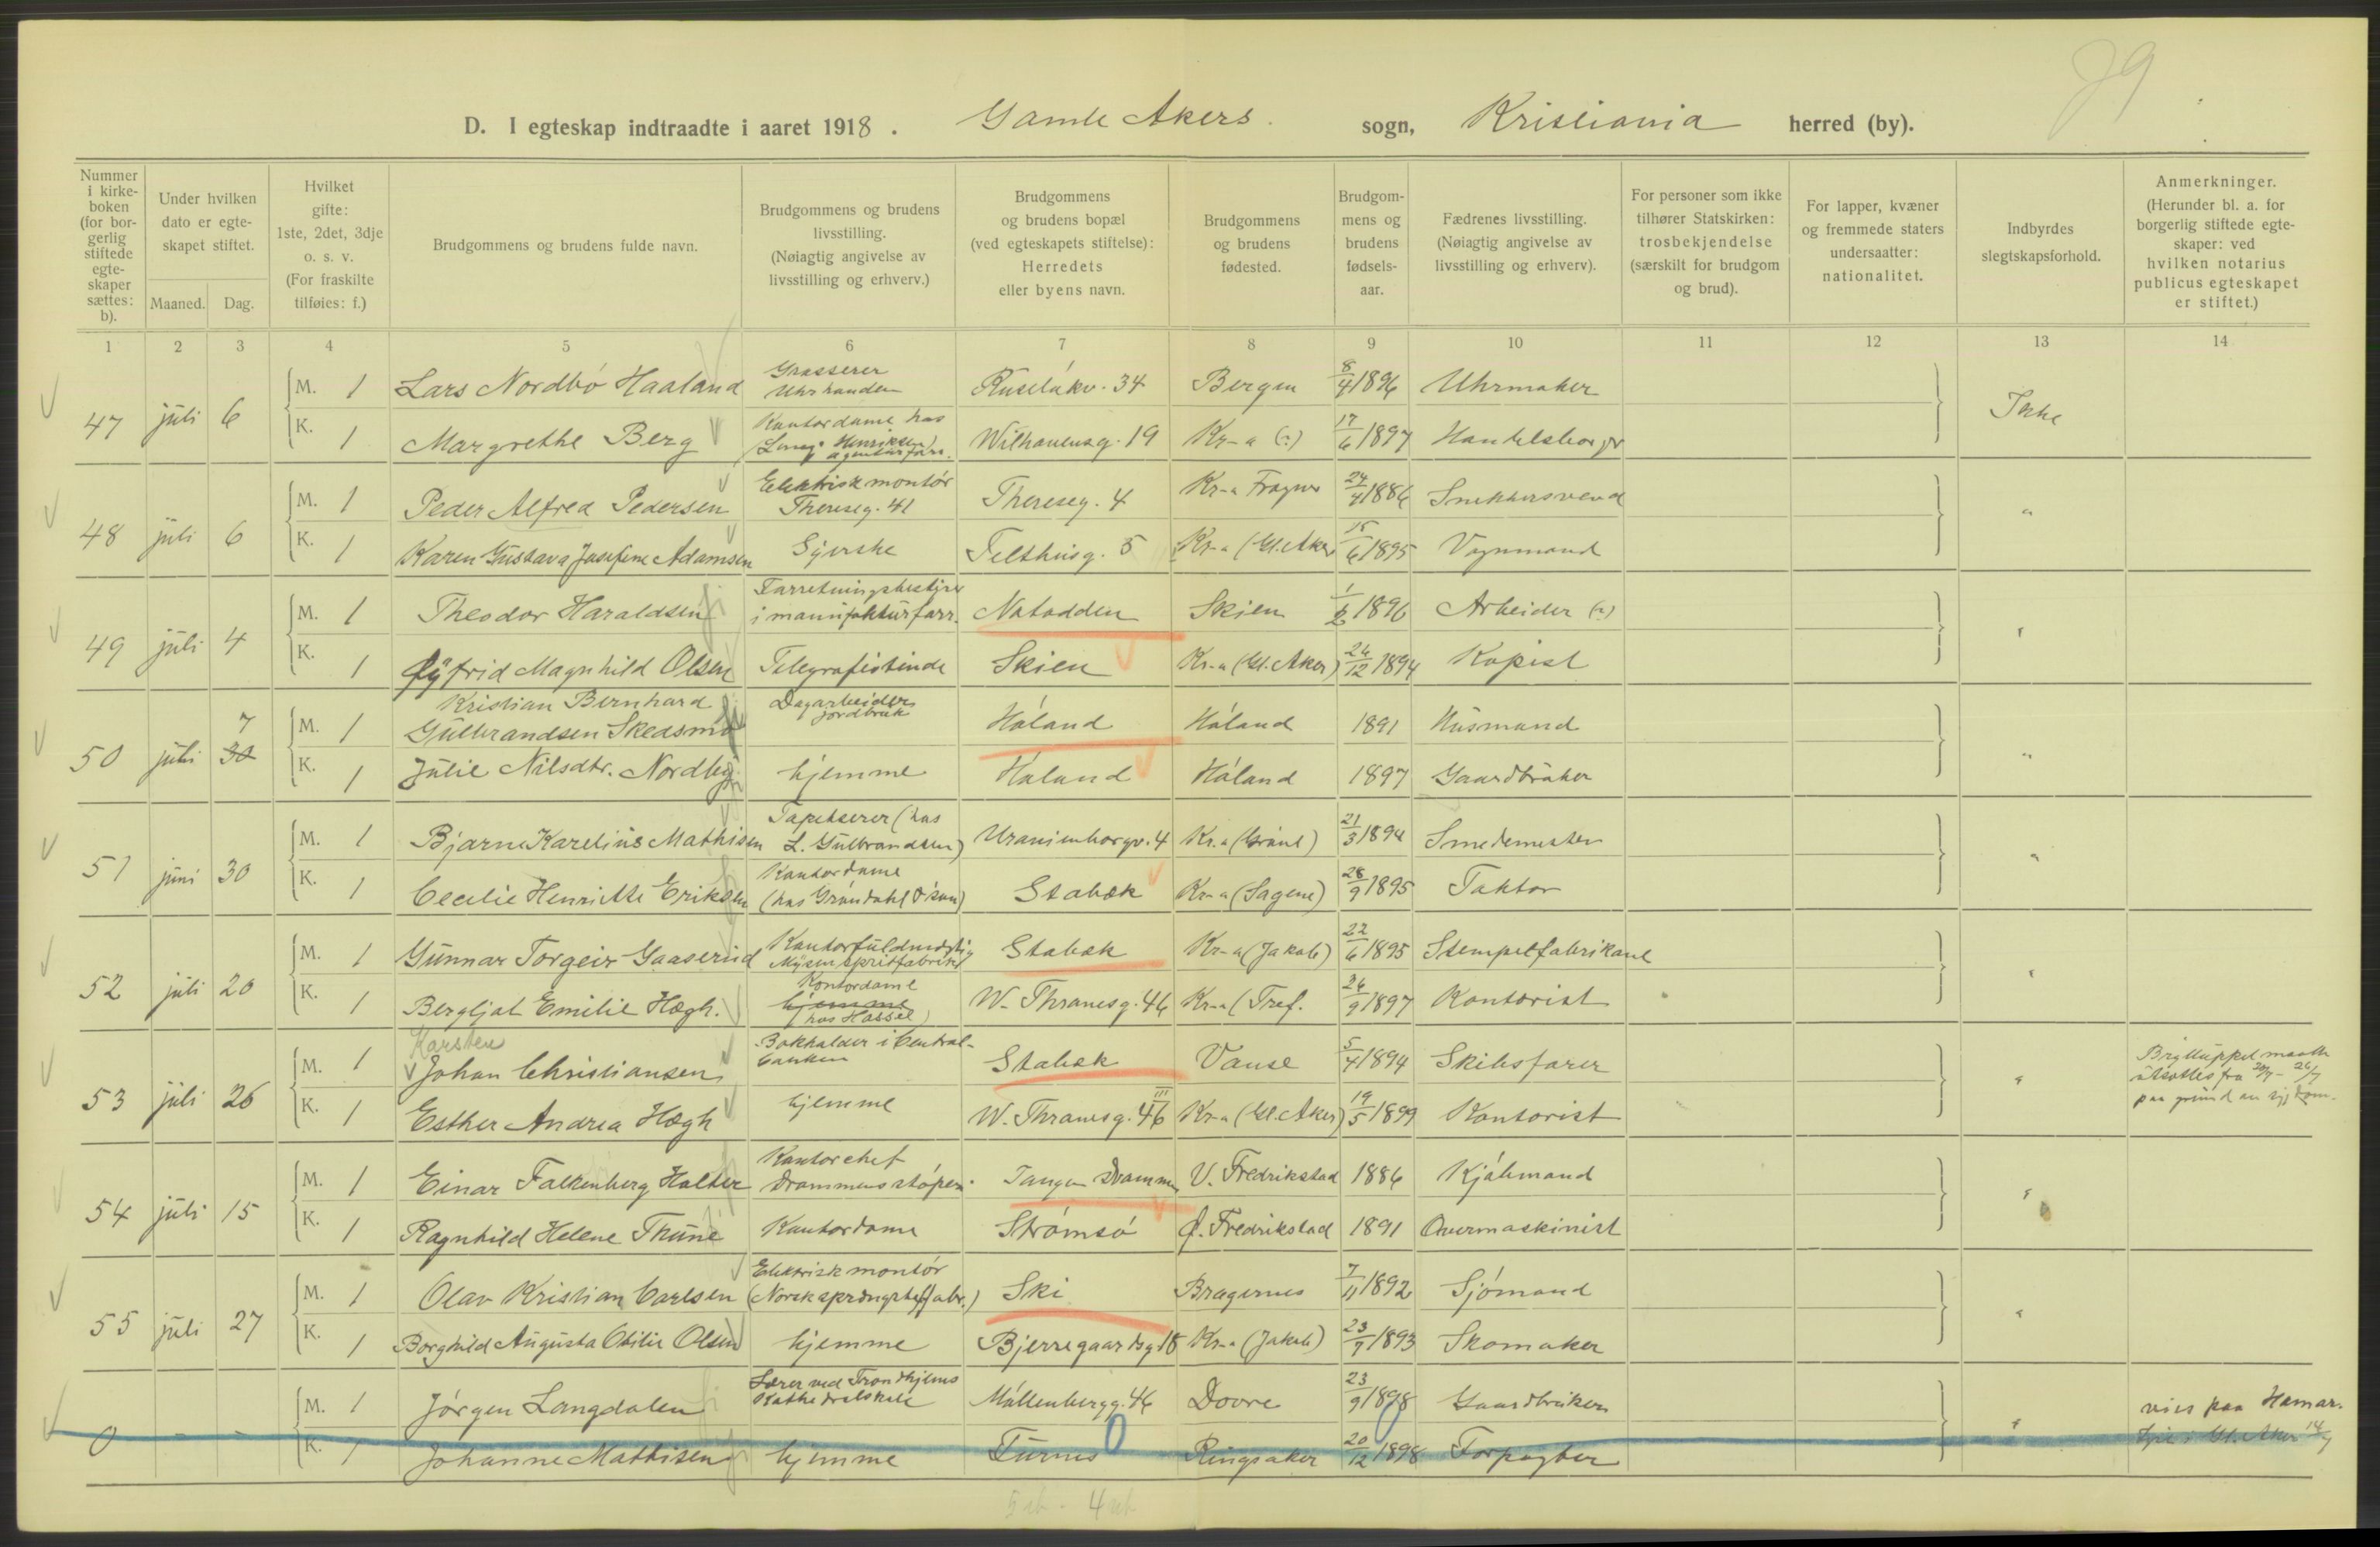 79
D. I egteskap indtraadte i aaret 1918. Gamle Akers sogn, Kristiania herred (by).
Nummer i kirke-boken (for bor-gerlig stiftede egte-skaper sættes: b).
Under hvilken dato er egte-skapet stiftet.
Maaned. Dag.
Hvilket gifte: 1ste, 2det, 3dje o. s. v. (For fraskilte tilføies: f.)
Brudgommens og brudens fulde navn.
Brudgommens og brudens livsstilling. (Nøiagtig angivelse av livsstilling og erhverv.)
Brudgommens og brudens bopæl (ved egteskapets stiftelse): Herredets eller byens navn.
Brudgommens og brudens fødested.
Brudgom-mens og brudens fødsels-aar.
Fædrenes livsstilling. (Nøiagtig angivelse av livsstilling og erhverv).
For personer som ikke tilhører Statskirken: trosbekjendelse (særskilt for brudgom og brud).
For lapper, kvæner og fremmede staters undersaatter: nationalitet.
Indbyrdes slegtskapsforhold.
Anmerkninger. (Herunder bl. a. for borgerlig stiftede egte-skaper: ved hvilken notarius publicus egteskapet er stiftet.)
1 2 3 4 5 6 7 8 9 10 11 12 13 14
47 juli 6 M. 1 Lars Nordbó Haaland Grosserer Uhrhanden Ruselókv. 34 Bergen 8/4 1896 Uhrmaker Ikke
K. 1 Margrethe Berg Kontordame hos Henriksen Wilhamsg. 19 Kr-a (?) 17/6 1897 Handelsborger
48 juli 6 M. 1 Peder Alfred Pedersen Elektrisk montör Thereseg. 41 Thereseg. 4 Kr-a Frogner 24/4 1886 Snekkersvend "
K. 1 Karen Gustava Josefine Adamsen Syerske Felthusg. 5 Kr-a (Gl. Aker 15/6 1895 Vognmand
49 juli 4 M. 1 Theodor Haraldsen Forretningsbestyrer i manufakturforr. Notodden Skien 1/2 1896 Arbeider (?) "
K. 1 Øyfrid Magnhild Olsen Telegrafistinde Skien Kr-a (Gl. Aker) 26/12 1894 Kopist
50 juli 30 7 M. 1 Kristian Bernhard Gulbrandsen Skedsmo Dagarbeider jordbruk Hóland Hóland 1891 Husmand "
K. 1 Julie Nilsdtr. Nordby hjemme Hóland Hóland 1897 Gaardbruker
51 juni 30 M. 1 Bjarne Karelius Mathisen Tapetserer (hos L. Gulbrandsen) Uranienborgv. 4 Kr.a (Grónl) 21/3 1894 Smedemester "
K. 1 Cecilie Henriette Eriksen Kontordame (hos Gröndahl & sön) Stabæk Kr-a (Sagene) 28/9 1895 Faktor
52 juli 20 M. 1 Gunnar Torgeir Gaaserud Kontorfuldmægtig Mysen spritfabrikk Stabæk Kr-a (Jakob) 22/6 1895 Stempelfabrikant "
K. 1 Bergljot Emilie Høgh. Kontordame hjemme (hos Hassel) W. Thranesg. 46 Kr-a (Tref. 26/9 1897 Kontorist
53 juli 26 M. 1 Karsten Johan Christiansen Bokholder i Central-banken Stabæk Vanse 5/4 1894 Skibsfører " Brylluppet maatte utsættes fra 20/7 - 26/7 paa grund av sygdom.
K. 1 Esther Andrea Høgh hjemme W. Thranesg. 46 III Kr-a (Gl. Aker) 19/5 1899 Kontorist
54 juli 15 M. 1 Einar Falkenberg Holter Kontorchef Drammens stöperi Tangen Drammen V. Fredrikstad 1886 Kjóbmand "
K. 1 Ragnhild Helene Thune Kontordame Strómsó Ø. Fredrikstad 1891 Overmaskinist
55 juli 27 M. 1 Olav Kristian Carlsen Elektrisk montör (Norsk sprængstoffabr.) Ski Bragernes 7/11 1892 Sjómand "
K. 1 Borghild Augusta Otilie Olsen hjemme Bjerregaardsg 18 Kr-a (Jakob) 23/9 1893 Skomaker
0 - - M. 1 Jörgen Langdalen Lærer ved Trondhjems Kathedralskole Möllenbergg. 46 Dovre 23/9 1898 Gaardbruker " vies paa Hamar. Lyst i Gl. Aker 14/7
K. 1 Johanne Mathisen hjemme Furnes 0 Ringsaker 20/12 1898 Forpagter